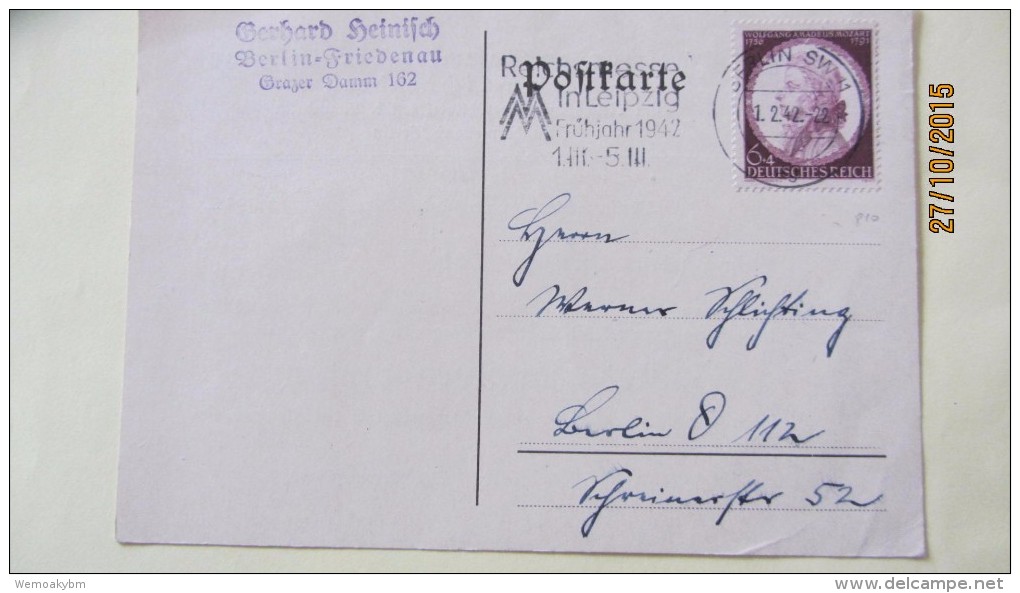 Gerhard Heinisch
Berlin-Friedenau
Grazer Damm 162
Postkarte
Reichsmesse
in Leipzig
Frühjahr 1942
1.III.-5.III.
BERLIN SW 11
1.2.42.-22
WOLFGANG AMADEUS MOZART
1756 1791
6+4
DEUTSCHES REICH
Herrn
Werner Schlichting
Berlin O 112
Schreinerstr 52
27/10/2015
Wemoakybm
www.delcampe.net